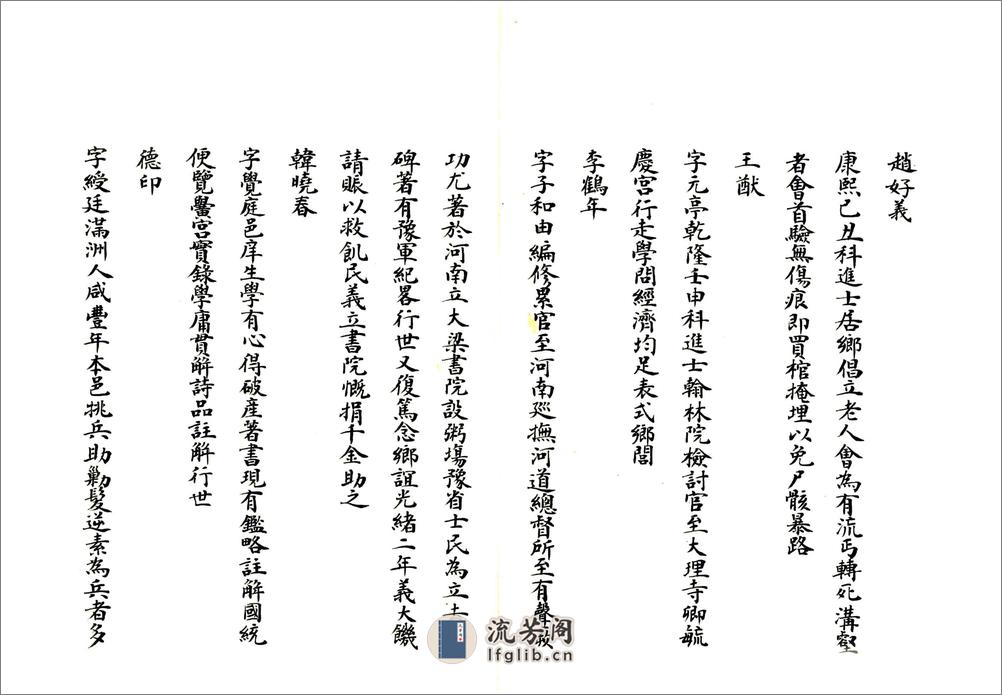 趙好義
康熙己丑科進士居鄉倡立老人會為有流丐轉死溝壑
者會首驗無傷痕即買棺掩埋以免尸骸暴路
王猷
字元亭乾隆壬申科進士翰林院檢討官至大理寺卿毓
慶宮行走學問經濟均足表式鄉閭
李鶴年
字子和由編修累官至河南廵撫河道總督所至有聲政
功尤著於河南立大梁書院設粥塲豫省士民為立
碑著有豫軍紀畧行世又復篤念鄉誼光緒二年義大饑
請賑以救飢民義立書院慨捐千金助之
韓曉春
字覺庭邑庠生學有心得破產著書現有鑑略註解國統
便覽黌宮實錄學庸貫解詩品註解行世
德印
字綬廷滿洲人咸豐年本邑挑兵助勦髮逆素為兵者多
流芳阁
lfglib.cn